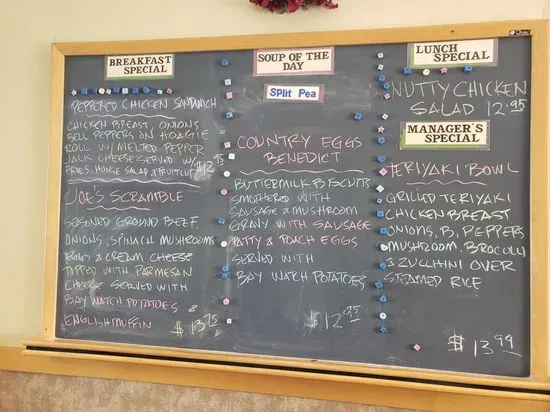 BREAKFAST
SPECIAL
PEPPERED CHICKEN SANDWICH
CHICKEN BREAST, ONIONS
BELL PEPPERS ON HOAGIE
ROLL W/ MELTED PEPPER
JACK CHEESE SERVED W/
FRIES, HOUSE SALAD & FRUIT CUP $12.95
JOE'S SCRAMBLE
SEASONED GROUND BEEF,
ONIONS, SPINACH MUSHROOMS
EGGS & CREAM CHEESE
TOPPED WITH PARMESAN
CHEESE SERVED WITH
BAY WATCH POTATOES &
ENGLISH MUFFIN
$ 13.75
SOUP OF THE
DAY
Split Pea
COUNTRY EGGS
BENEDICT
BUTTERMILK BISCUITS
SMOTHERED WITH
SAUSAGE & MUSHROOM
GRAVY WITH SAUSAGE
PATTY & POACH EGGS
SERVED WITH
BAY WATCH POTATOES
$ 12.95
LUNCH
SPECIAL
NUTTY CHICKEN
SALAD 12.95
MANAGER'S
SPECIAL
TERIYAKI BOWL
GRILLED TERIYAKI
CHICKEN BREAST
ONIONS, B. PEPPERS
MUSHROOM, BROCOLLI
& ZUCCHINI OVER
STEAMED RICE
$ 13.99